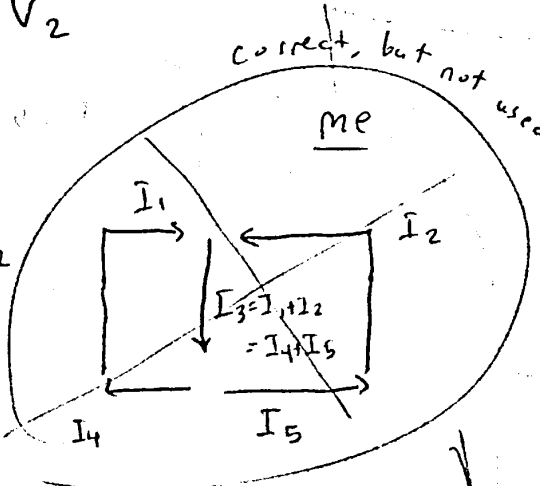 V2
correct, but not used
me
I1
I2
I3=I1+I2
=I4+I5
I4
I5